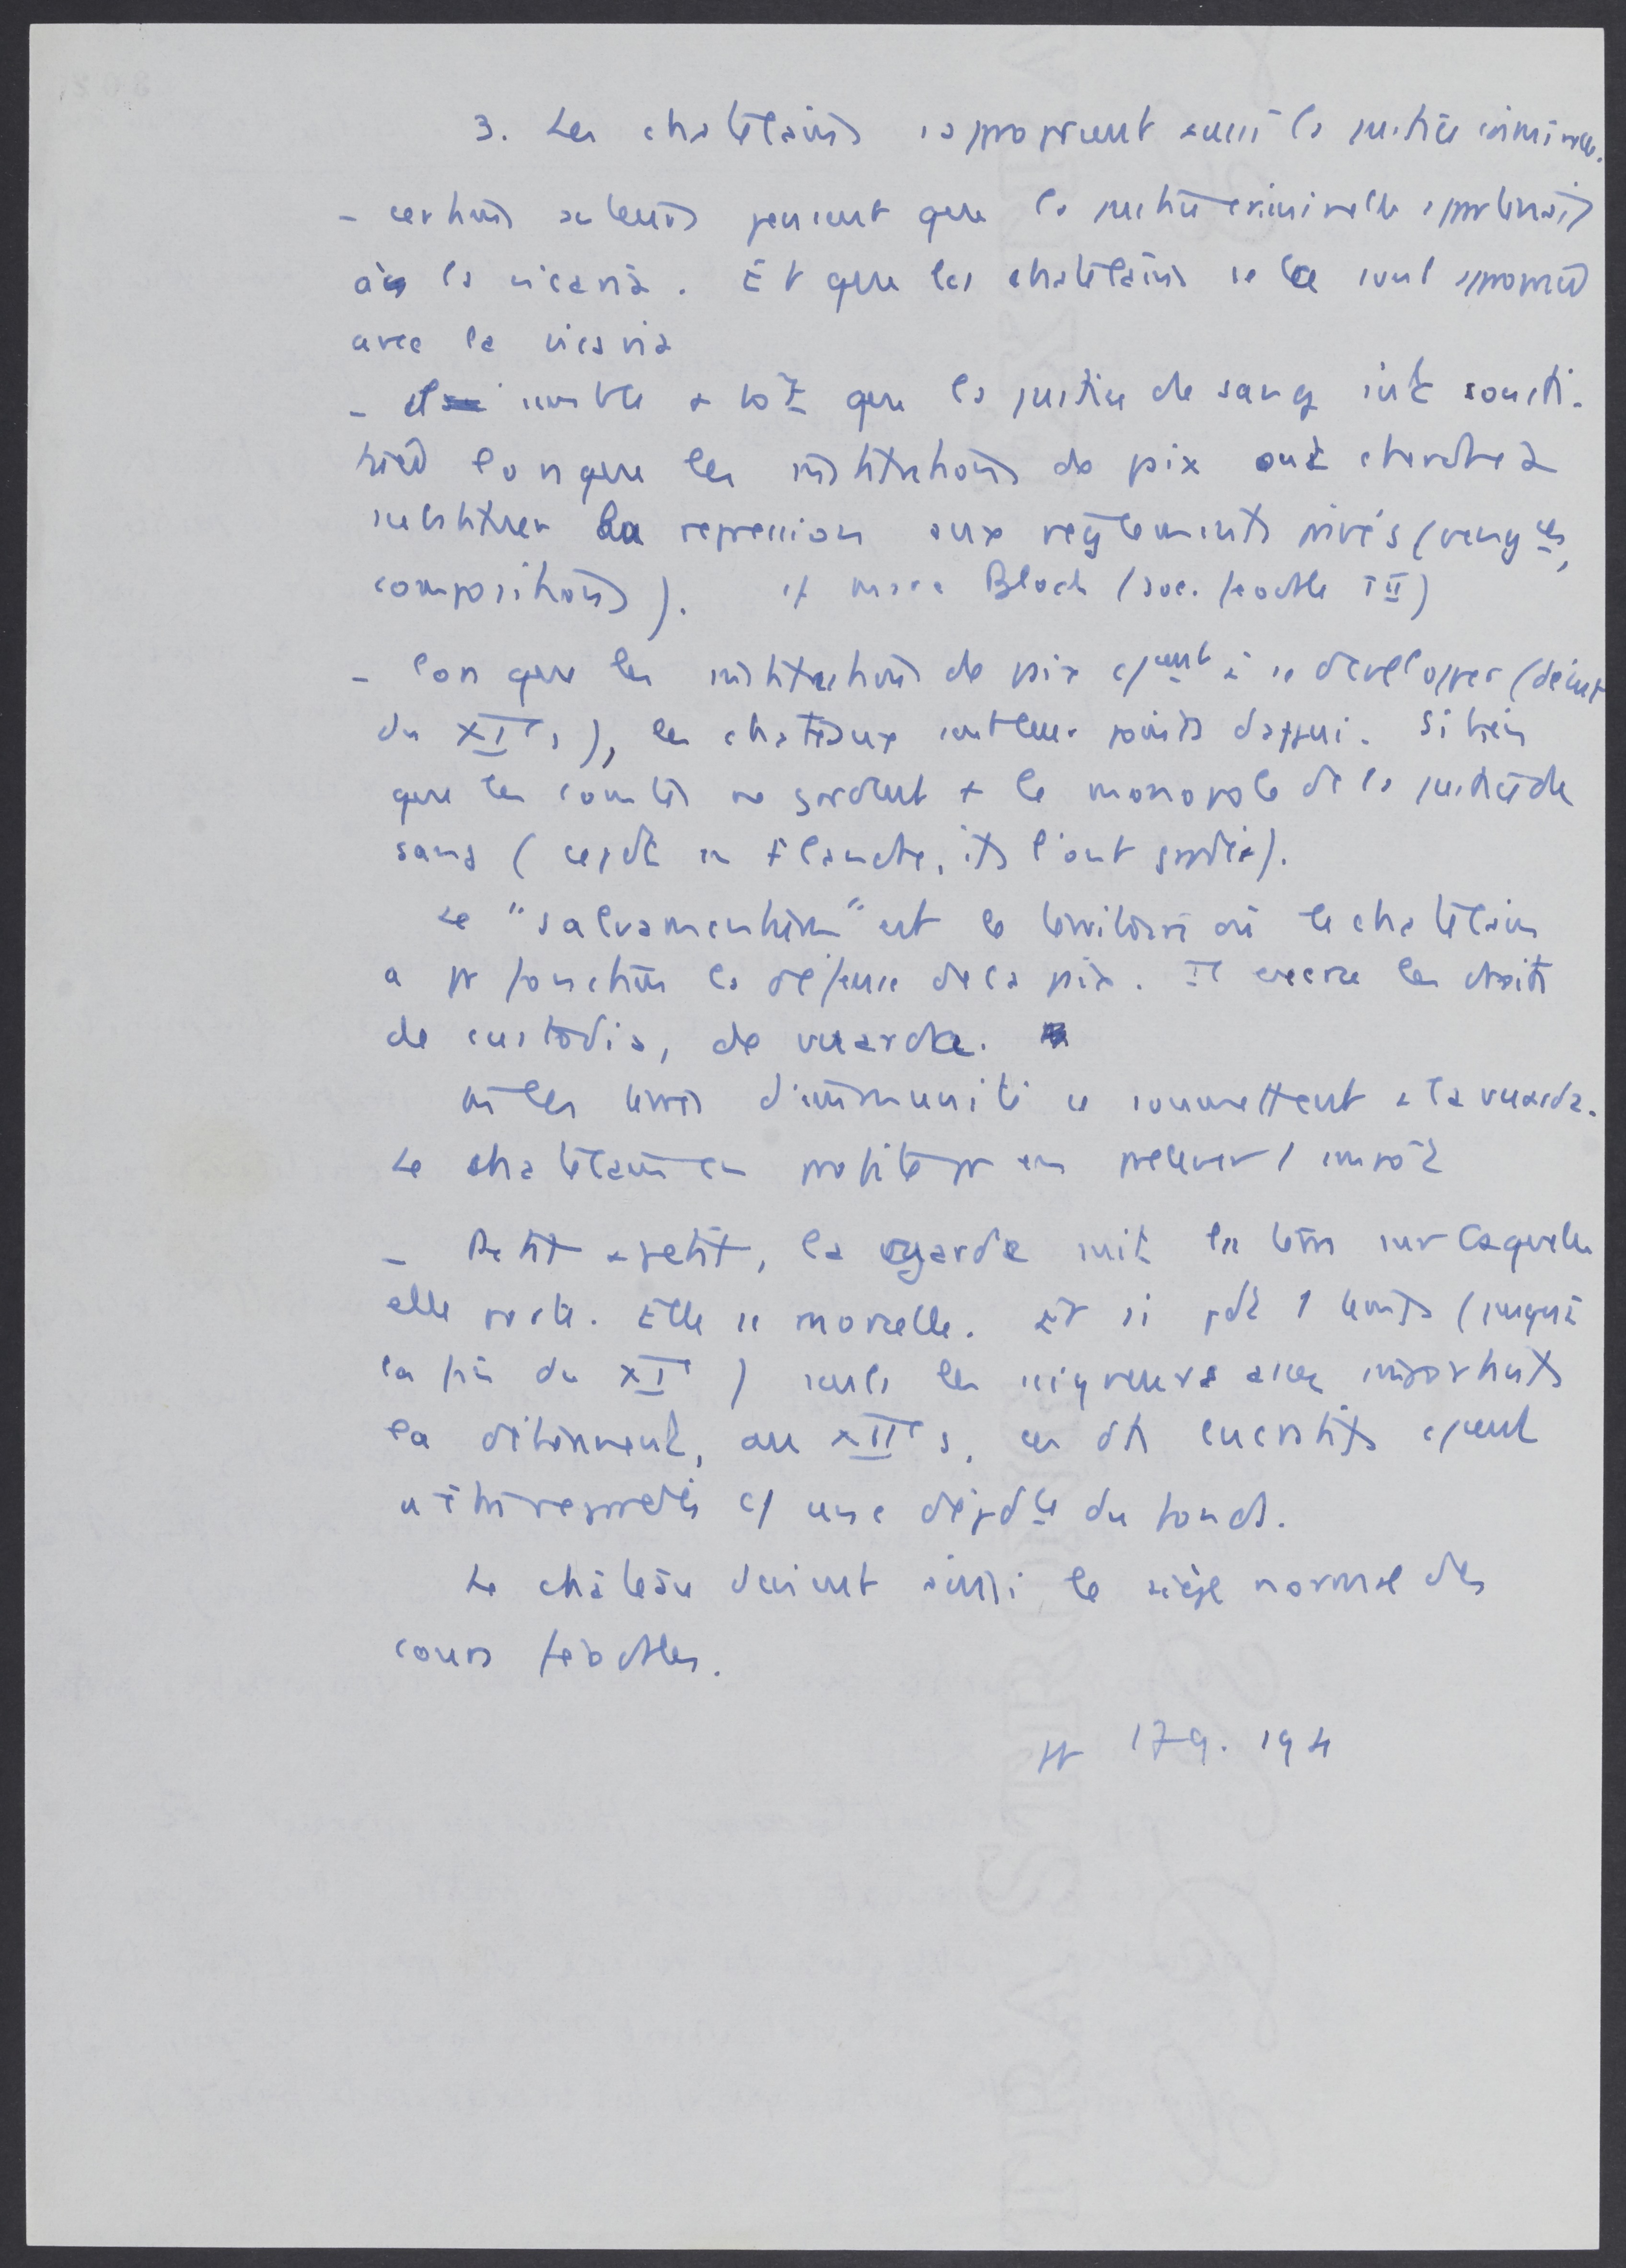 3. Les chatelains s'approprient aussi la justice criminelle.
- certains auteurs pensent que la justice criminelle appartenait
à la vicaria. Et que les chatelains se la sont appropriée
avec la vicaria
- Il semble + tôt que la justice de sang s'est consti-
tuée lorsque les institutions de paix ont cherché à
substituer la repression aux reglements privés (veng ces,
compositions). cf Marc Bloch (soc. féodale T II)
- lorsque les institutions de paix c/cent à se developper (début
du XI e s), les chateaux sont leurs points d'appui. Si bien
que les comtes ne gardent + le monopole de la justice de
sang (cepdt en Flandre, ils l'ont gardée).
Le "salvamentum" est le territoire où le chatelain
a pr fonction la defense de la paix. Il exerce les droits
de custodia, de vuarda.
les terres d'immunité se soumettent à la vuarda.
Le chatelain en profite pr en prelever 1 impôt
- Petit a petit, la garde suit la terre sur laquelle
elle porte. Elle se morcelle. Et si pdt 1 temps (jusqu'à
la fin du XI e) seuls les seigneurs assez importants
la détiennent, au XII e s, ces dts lucratifs c/cent
à être regardés c/ une dépdce du fonds.
Le château devient ainsi le siège normal des
cours féodales.
pr 179. 194